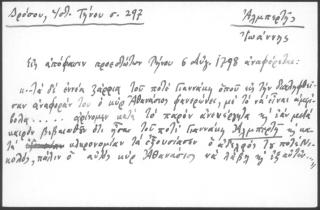 Δρόσου, Ἱστ. Τήνου σ. 297
Ἀλμπέρτης
Ἰωάννης
Εἰς ἀπόφασιν προεστώτων Τήνου 6 Αὐγ. 1798 ἀναφέρεται:
«..τὰ δὲ ἐννέα ζάρια τοῦ ποτὲ Γιαννάκη ὁποῦ εἰς τὴν
ἀναφοράν του ὁ κὺρ Ἀθανάσιος φανερώνει, μὲ τὸ νὰ εἶναι ἀμφί-
βολα..... μετὰ τὸ παρὸν ἀνενέργητα κἂν μετὰ
καιρὸν βεβαιωθῇ ὅτι ἦσαν τοῦ ποτὲ Γιαννάκη Ἀλμπέρτη κατὰ
κληρονομίαν τὰ ἐξουσίασεν ὁ ἀδελφός του ποτὲ Νι-
κολός, πάλιν ὁ αὐτὸς κὺρ Ἀθανάσιος νὰ λάβῃ ἐξ αὐτῶν...»